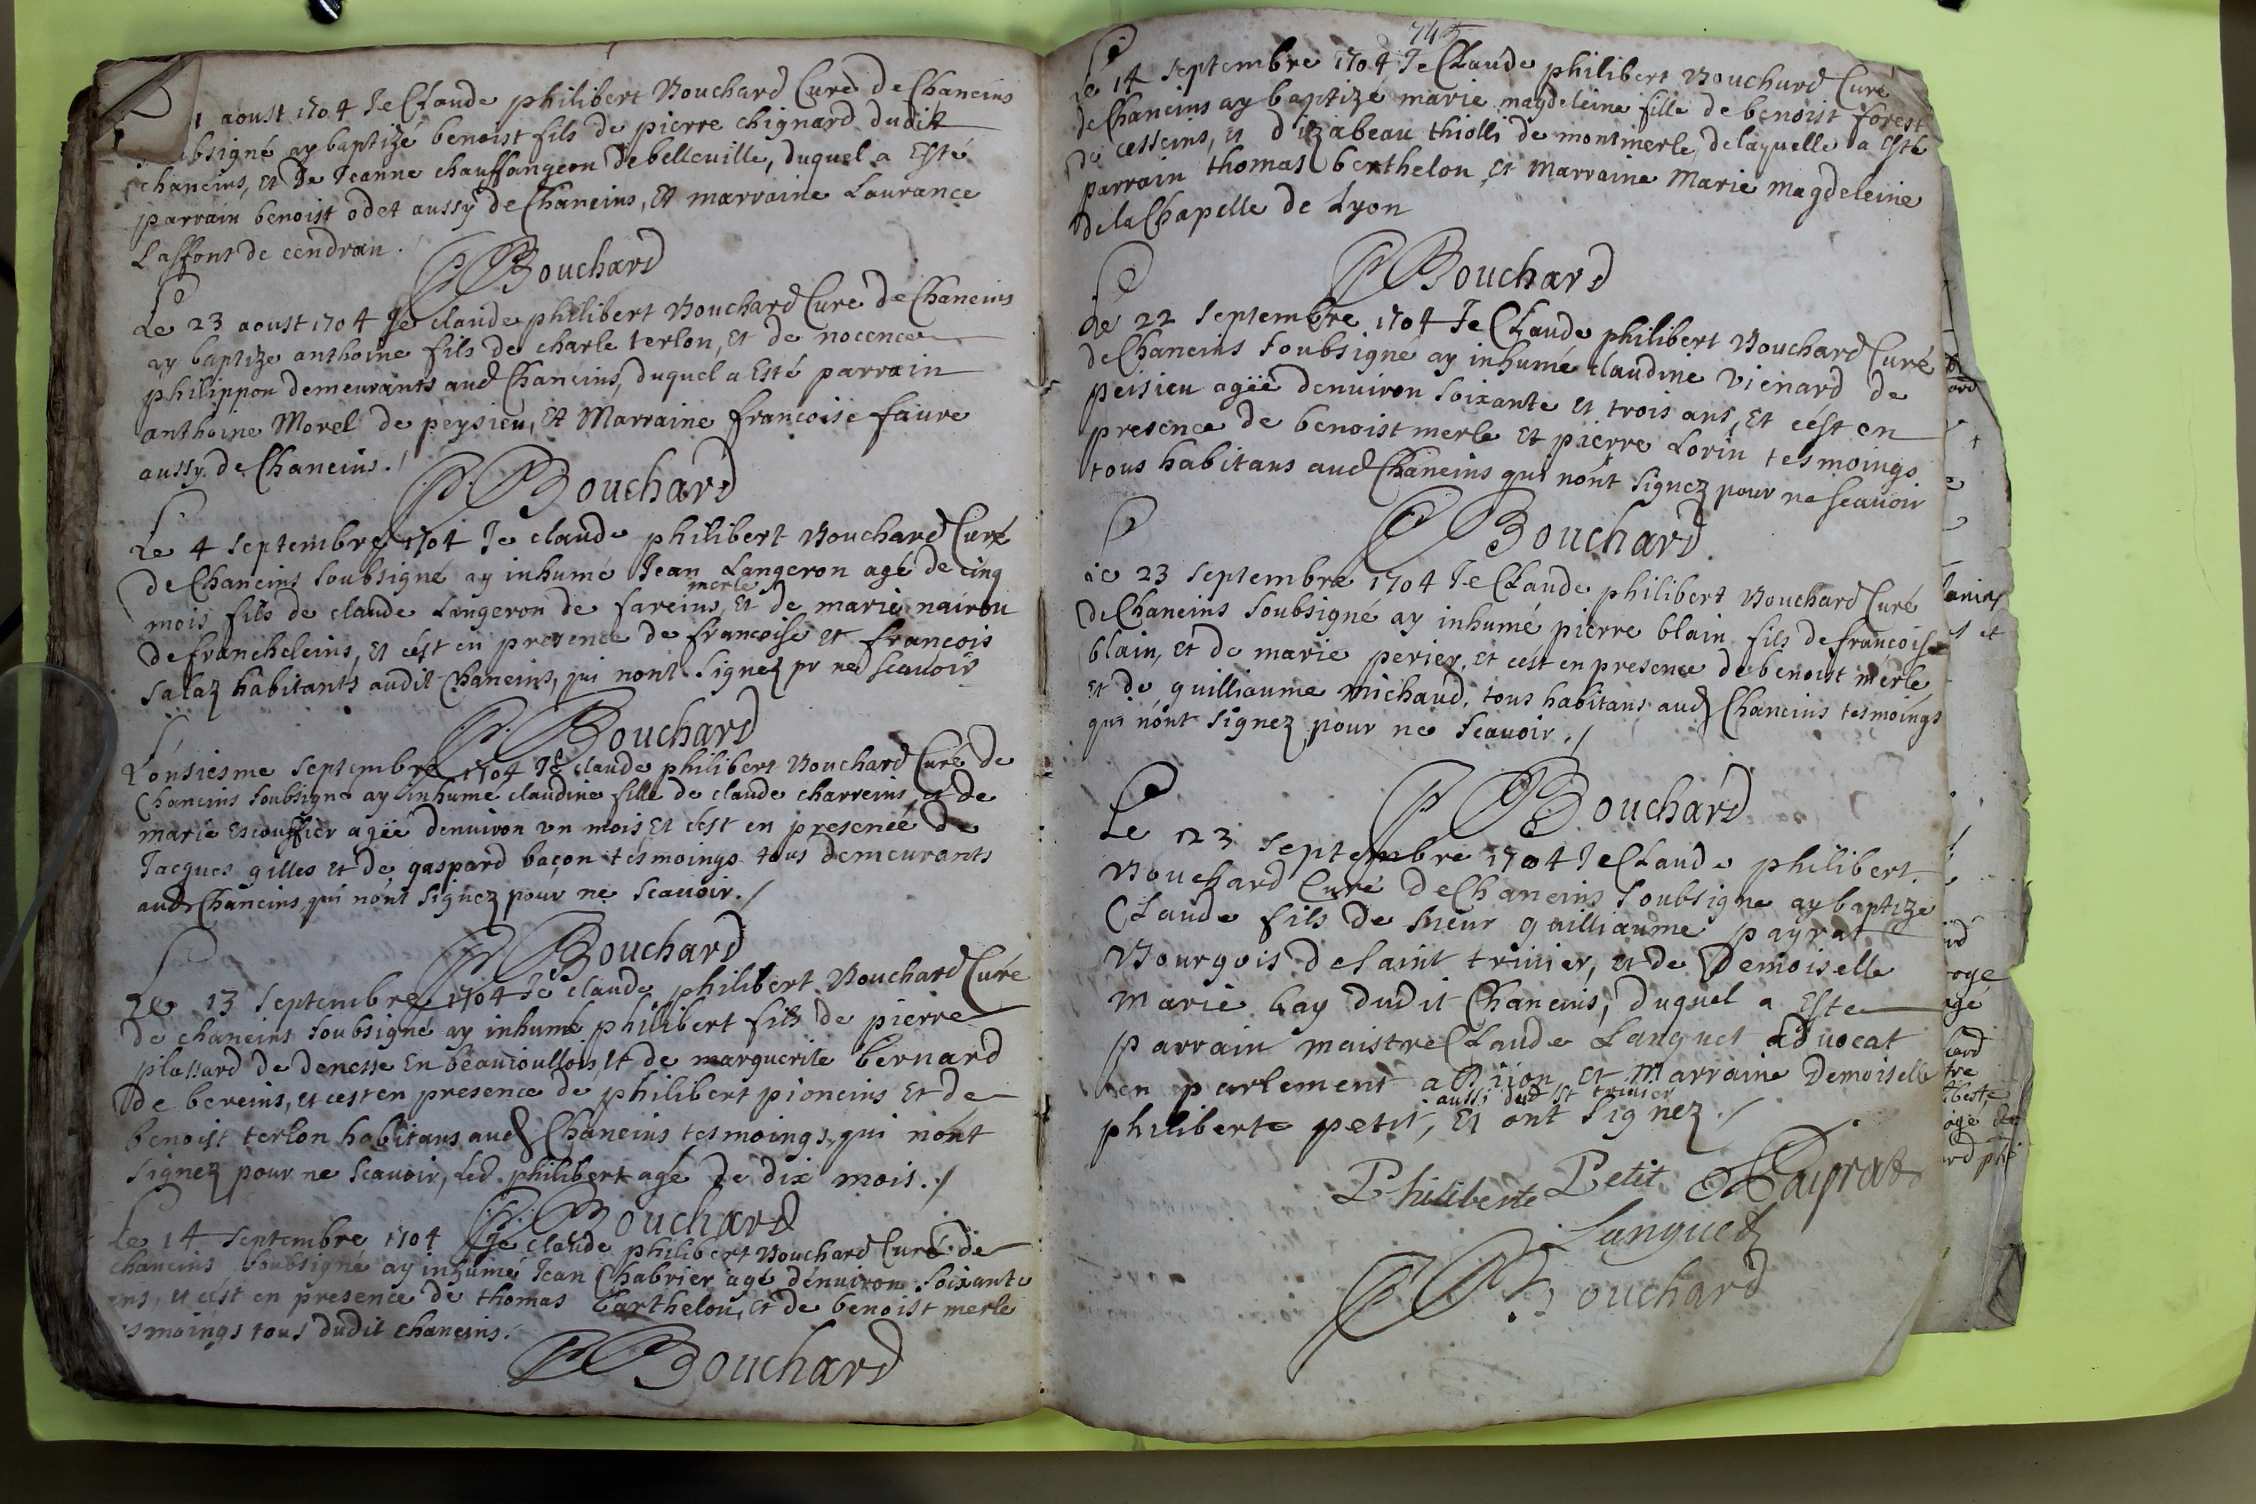 1 aoust 1704 Je Claude philibert Bouchard Curé de Chaneins
soubsigné ay baptizé benoist fils de pierre chignard dudit
chaneins, et de Jeanne chauffangeon de belleuille, duquel a Esté
parrain benoist odet aussy de Chaneins, et marraine Laurance
Laffont de cendran.
Bouchard
Le 23 aoust 1704 Je claude philibert Bouchard Curé de Chaneins
ay baptize anthoine fils de charle terlon, et de nocence
philippon demeurants aud Chaneins, duquel a Esté parrain
anthoine Morel de peysieu, et Marraine francoise faure
aussy de Chaneins./
Bouchard
Le 4 Septembre 1704 Je claude philibert Bouchard Curé
de Chaneins soubsigné ay inhumé Jean Langeron agé de cinq
merle
mois fils de claude Langeron de fareins, Et de marie nairou
de francheleins, Et c'est en presence de francoise et francois
Salaz habitants audit Chaneins, qui nont Signez pr ne scauoir
Bouchard
L'onsiesme Septembre 1704 Je claude philibert Bouchard Curé de
Chaneins soubsigné ay inhumé claudine fille de claude charreins, et de
marie Escouffier agée denuiron un mois, Et c'est en presence de
Jacques gilles et de gaspard baçon tesmoings tous demeurants
aud Chaneins qui n'ont Signez pour ne scauoir./
Bouchard
Le 13 Septembre 1704 Je claude philibert Bouchard Curé
de chaneins soubsigné ay inhumé philibert fils de pierre
plassard de denesse En beauioullois, Et de marguerite bernard
de bereins, et cest en presence de philibert pioneins Et de
benoist terlon habitans aud Chaneins tesmoings, qui n'ont
Signez pour ne scauoir, led. philibert agé de dix mois./
Bouchard
Le 14 Septembre 1704 Je claude philibert Bouchard Curé de
chaneins soubsigné ay inhumé Jean Chabrier agé denuiron soixante
ans, et c'est en presence de thomas barthelon, et de benoist merle
esmoings tous dudit chaneins.
Bouchard
745
Le 14 Septembre 1704 Je Claude philibert Bouchard Curé
de Chaneins ay baptizé marie magdeleine fille de benoist forest
de cesseins, et dizabeau thiolli de montmerle, de laquelle a Esté
parrain thomas berthelon et Marraine Marie magdeleine
de la Chapelle de Lyon
Bouchard
Le 22 Septembre 1704 Je Claude philibert Bouchard Curé
de Chaneins soubsigné ay inhumé claudine vienard de
peisieu agée denuiron soixante et trois ans, Et c'est en
presence de benoist merle et pierre Lorin tesmoings
tous habitans aud Chaneins qui n'ont Signez pour ne scauoir
Bouchard
Le 23 Septembre 1704 Je Claude philibert Bouchard Curé
de Chaneins soubsigné ay inhumé pierre blain fils de francois
blain, et de marie perier, et c'est en presence de benoist merle
Et de guilliaume michaud, tous habitans aud Chaneins tesmoings
qui n'ont Signez pour ne scauoir./
Bouchard
Le 23 Septembre 1704 Je Claude philibert
Bouchard Curé de Chaneins soubsigne ay baptize
Claude fils de sieur guilliaume payrat
Bourgois de saint triuier, et de Demoiselle
Marie bay dudit Chaneins, duquel a Este
parrain maistre Claude Languet aduocat
en parlement a Dijon et Marraine Demoiselle
aussi dud St triuier
philiberte petit, Et ont Signez./
Philiberte Petit Payrat
Languet
Bouchard